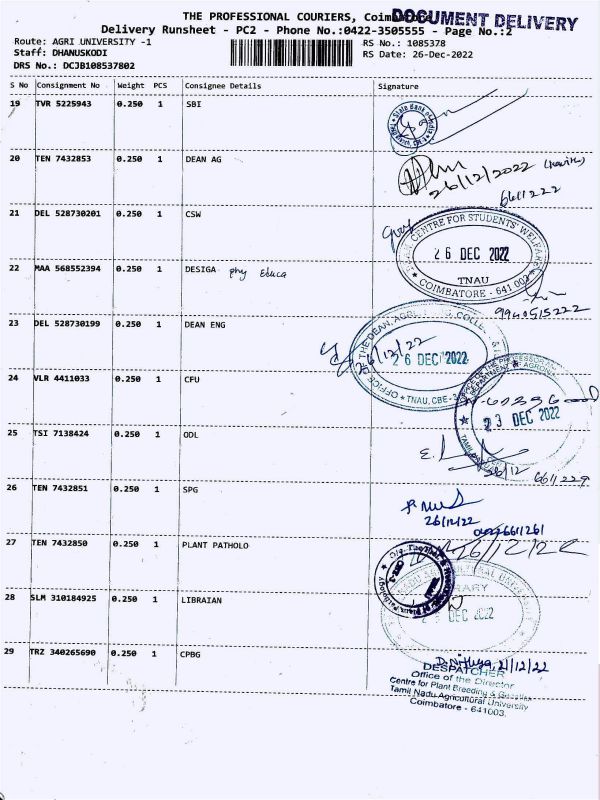 THE PROFESSIONAL COURIERS,
DOCUMENT DELIVERY
Delivery Runsheet - PC2 - Phone No.:0422-3505555 - Page No.:2
Route: AGRI UNIVERSITY -1
RS No.: 1085378
Staff: DHANUSKODI
RS Date: 26-Dec-2022
DRS No.: DCJB108537802
S No Consignment No Weight PCS Consignee Details Signature
19 TVR 5225943 0.250 1 SBI
State Bank of India
20 TEN 7432853 0.250 1 DEAN AG
26/12/2022
6611222
21 DEL 528730201 0.250 1 CSW
CENTRE FOR STUDENTS' WELFARE
26 DEC 2022
TNAU
COIMBATORE - 641 003
22 MAA 568552394 0.250 1 DESIGA phy Educa
9940515222
23 DEL 528730199 0.250 1 DEAN ENG
OFFICE OF THE DEAN, AGRL. COLLE
26/12/22
26 DEC 2022
TNAU, CBE-3
24 VLR 4411033 0.250 1 CFU
OFFICE OF THE PROFESSOR
DEPARTMENT OF AGRONO
23 DEC 2022
TAMIL
25 TSI 7138424 0.250 1 ODL
26/12
6611229
26 TEN 7432851 0.250 1 SPG
26/12/22
0422 6611261
27 TEN 7432850 0.250 1 PLANT PATHOLO
26/12/22
28 SLM 310184925 0.250 1 LIBRAIAN
DEC 2022
29 TRZ 340265690 0.250 1 CPBG
21/12/22
DESPATCHER
Office of the Director
Centre for Plant Breeding & Genetics
Tamil Nadu Agricultural University
Coimbatore - 641003.